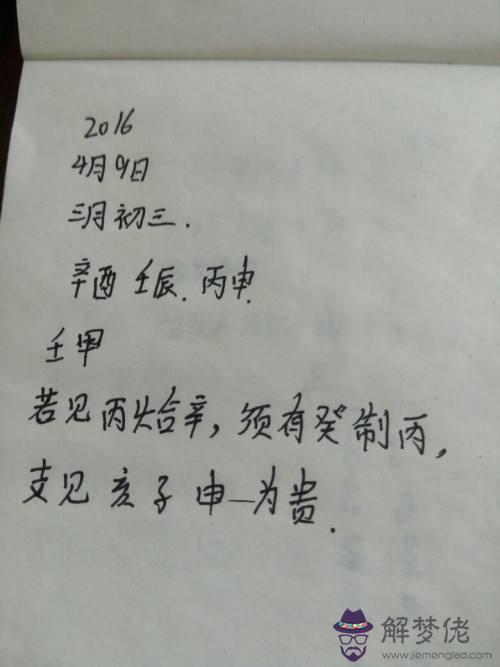 2016
4月9日
三月初三.
辛酉 壬辰. 丙申.
壬甲
若见丙火合辛,须有癸制丙,
支见亥子申一为贵.
解梦佬
www.jiemenglao.com